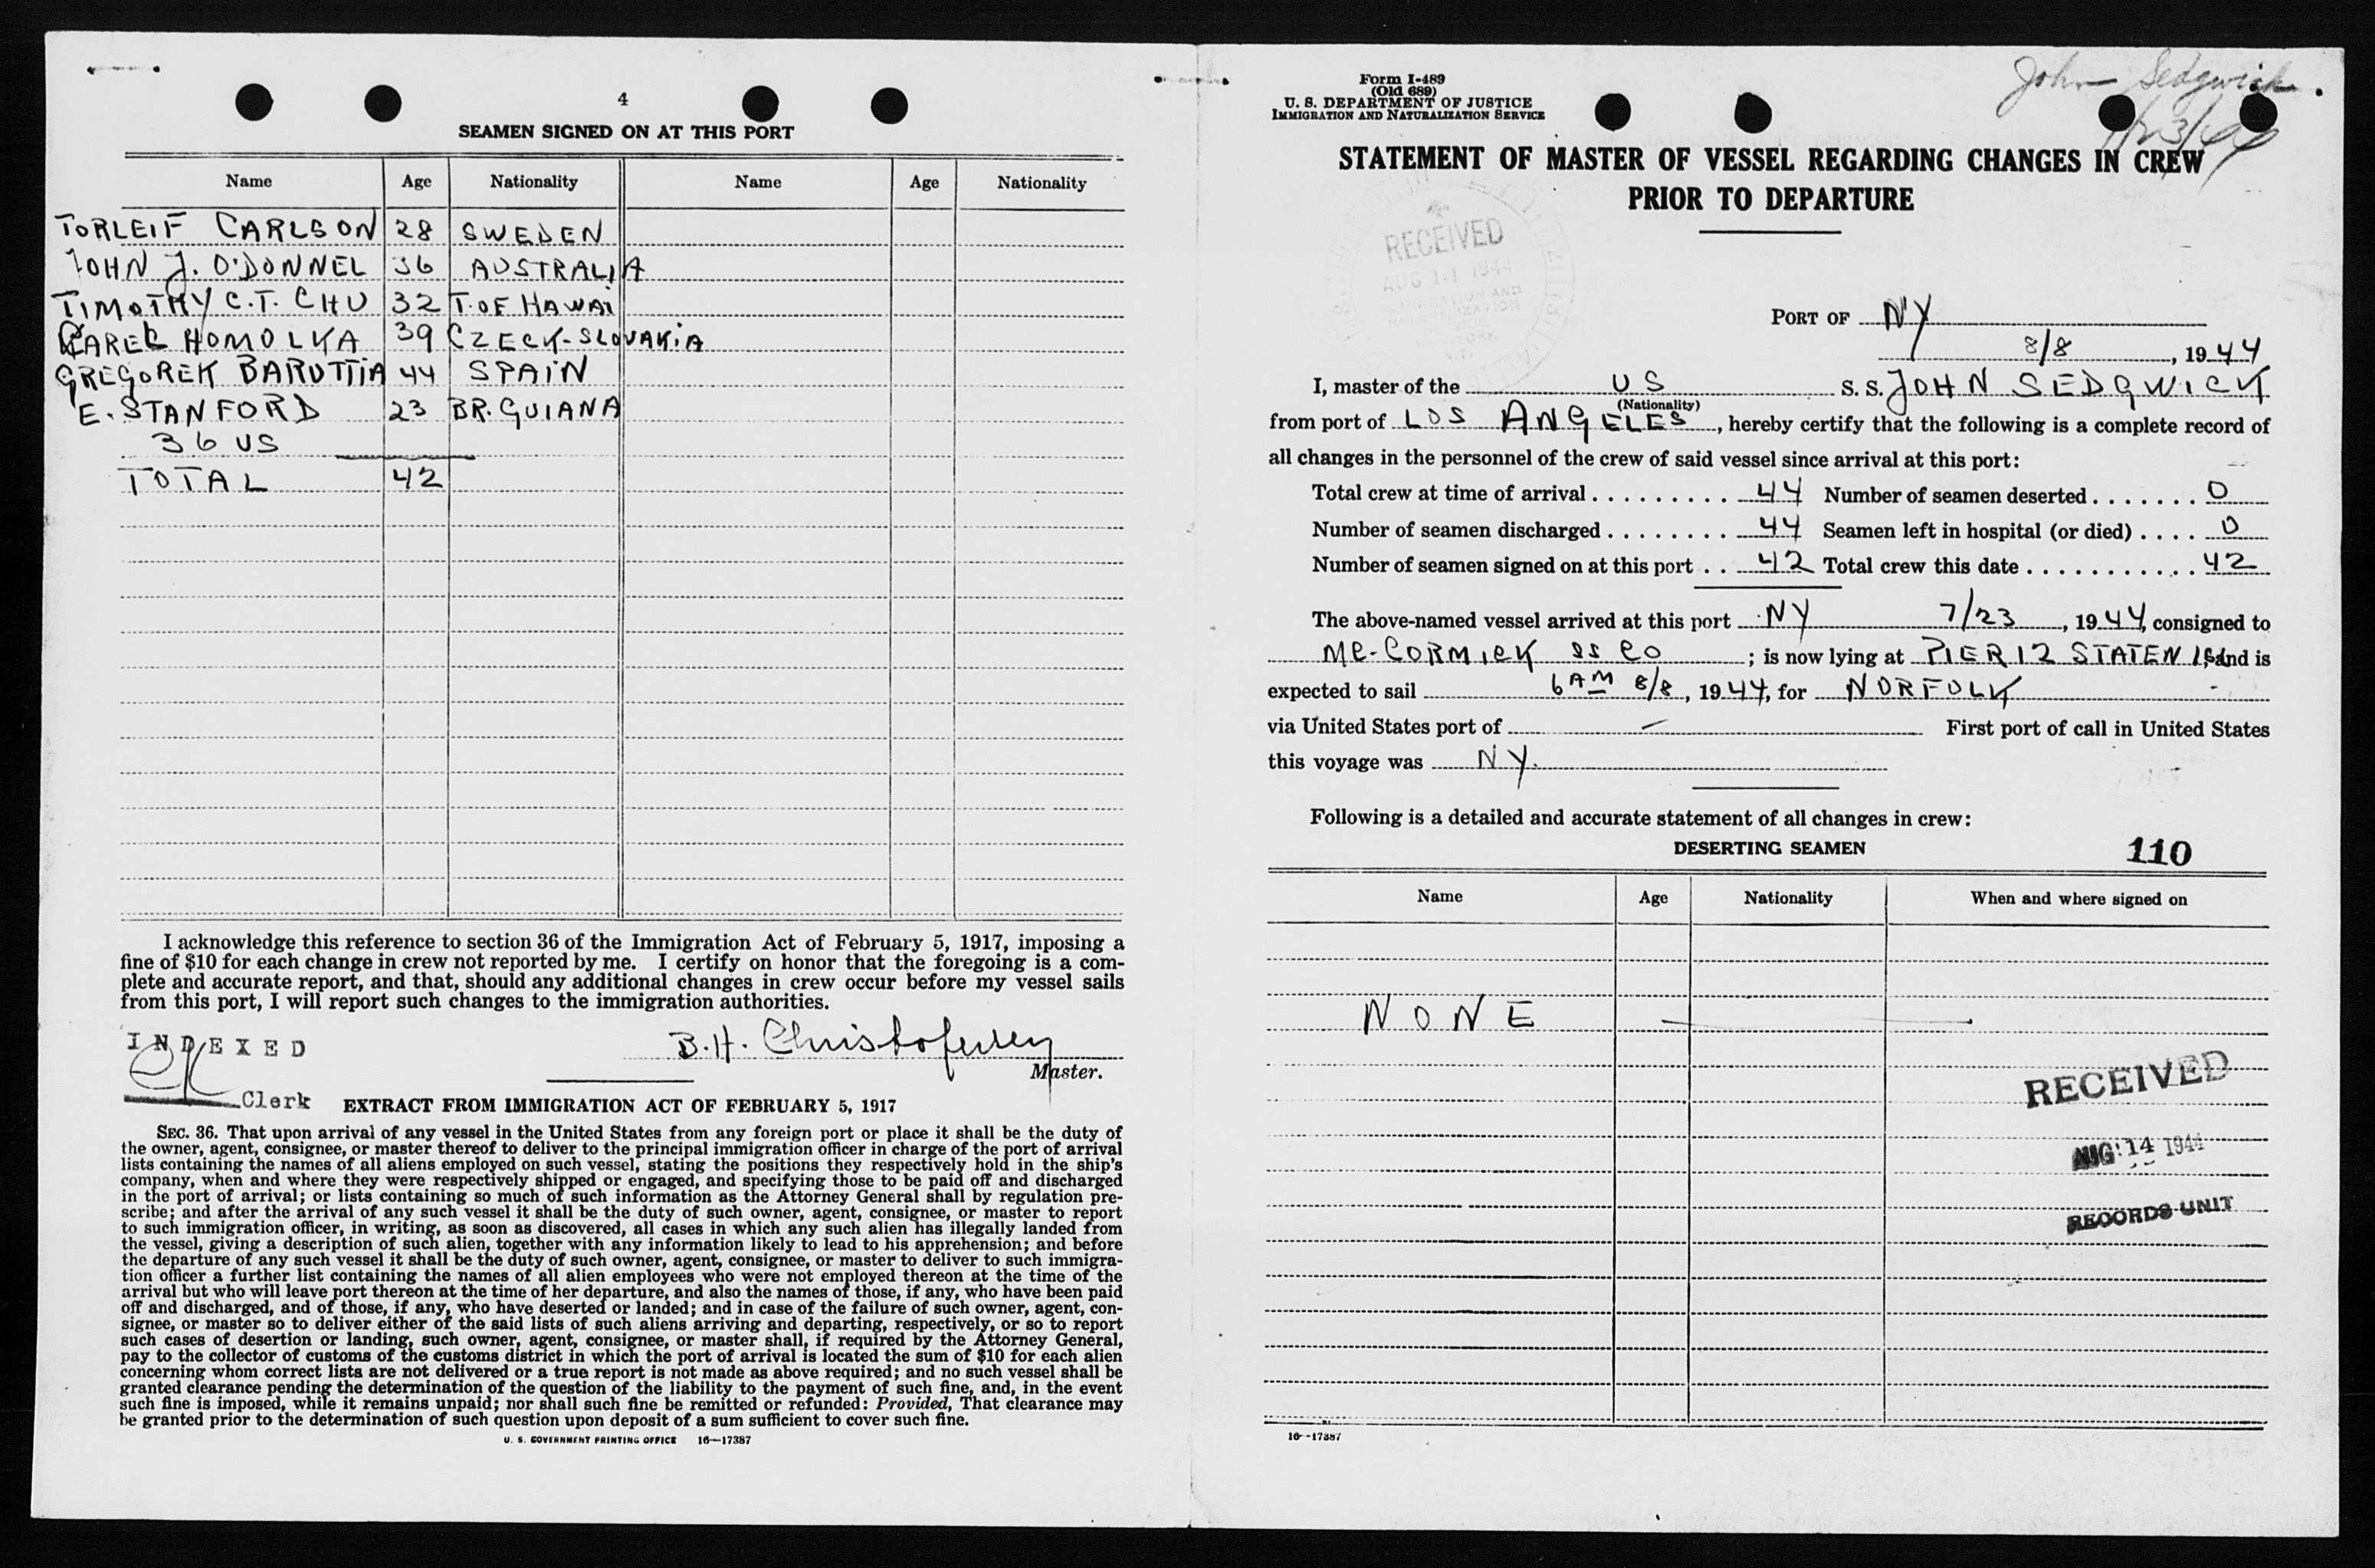 4
SEAMEN SIGNED ON AT THIS PORT
Name Age Nationality Name Age Nationality
TORLEIF CARLSON 28 SWEDEN
JOHN J. O'DONNEL 36 AUSTRALIA
TIMOTHY C.T. CHU 32 T. OF HAWAI
KAREL HOMOLKA 39 CZECK-SLOVAKIA
GREGOREK BARUTTIA 44 SPAIN
E. STANFORD 23 BR. GUIANA
36 US
TOTAL 42
I acknowledge this reference to section 36 of the Immigration Act of February 5, 1917, imposing a
fine of $10 for each change in crew not reported by me. I certify on honor that the foregoing is a com-
plete and accurate report, and that, should any additional changes in crew occur before my vessel sails
from this port, I will report such changes to the immigration authorities.
INDEXED
B. H. Christofersen
Master.
Clerk
EXTRACT FROM IMMIGRATION ACT OF FEBRUARY 5, 1917
SEC. 36. That upon arrival of any vessel in the United States from any foreign port or place it shall be the duty of
the owner, agent, consignee, or master thereof to deliver to the principal immigration officer in charge of the port of arrival
lists containing the names of all aliens employed on such vessel, stating the positions they respectively hold in the ship's
company, when and where they were respectively shipped or engaged, and specifying those to be paid off and discharged
in the port of arrival; or lists containing so much of such information as the Attorney General shall by regulation pre-
scribe; and after the arrival of any such vessel it shall be the duty of such owner, agent, consignee, or master to report
to such immigration officer, in writing, as soon as discovered, all cases in which any such alien has illegally landed from
the vessel, giving a description of such alien, together with any information likely to lead to his apprehension; and before
the departure of any such vessel it shall be the duty of such owner, agent, consignee, or master to deliver to such immigra-
tion officer a further list containing the names of all alien employees who were not employed thereon at the time of the
arrival but who will leave port thereon at the time of her departure, and also the names of those, if any, who have been paid
off and discharged, and of those, if any, who have deserted or landed; and in case of the failure of such owner, agent, con-
signee, or master so to deliver either of the said lists of such aliens arriving and departing, respectively, or so to report
such cases of desertion or landing, such owner, agent, consignee, or master shall, if required by the Attorney General,
pay to the collector of customs of the customs district in which the port of arrival is located the sum of $10 for each alien
concerning whom correct lists are not delivered or a true report is not made as above required; and no such vessel shall be
granted clearance pending the determination of the question of the liability to the payment of such fine, and, in the event
such fine is imposed, while it remains unpaid; nor shall such fine be remitted or refunded: Provided, That clearance may
be granted prior to the determination of such question upon deposit of a sum sufficient to cover such fine.
U. S. GOVERNMENT PRINTING OFFICE 16—17387
Form I-489
(Old 689)
U. S. DEPARTMENT OF JUSTICE
IMMIGRATION AND NATURALIZATION SERVICE
John Sedgwick.
7/23/44
STATEMENT OF MASTER OF VESSEL REGARDING CHANGES IN CREW
PRIOR TO DEPARTURE
RECEIVED
AUG 11 1944
PORT OF NY
8/8, 1944
I, master of the US S. S. JOHN SEDGWICK
(Nationality)
from port of LOS ANGELES, hereby certify that the following is a complete record of
all changes in the personnel of the crew of said vessel since arrival at this port:
Total crew at time of arrival . . . . . . . . . 44 Number of seamen deserted . . . . . . . 0
Number of seamen discharged . . . . . . . . 44 Seamen left in hospital (or died) . . . . 0
Number of seamen signed on at this port . . 42 Total crew this date . . . . . . . . . . . . 42
The above-named vessel arrived at this port NY 7/23, 1944, consigned to
Mc-CORMICK SS CO; is now lying at PIER 12 STATEN ISd and is
expected to sail 6 AM 8/8, 1944, for NORFOLK
via United States port of — First port of call in United States
this voyage was NY.
Following is a detailed and accurate statement of all changes in crew:
DESERTING SEAMEN
110
Name Age Nationality When and where signed on
NONE
RECEIVED
AUG 14 1944
RECORDS UNIT
16—17387